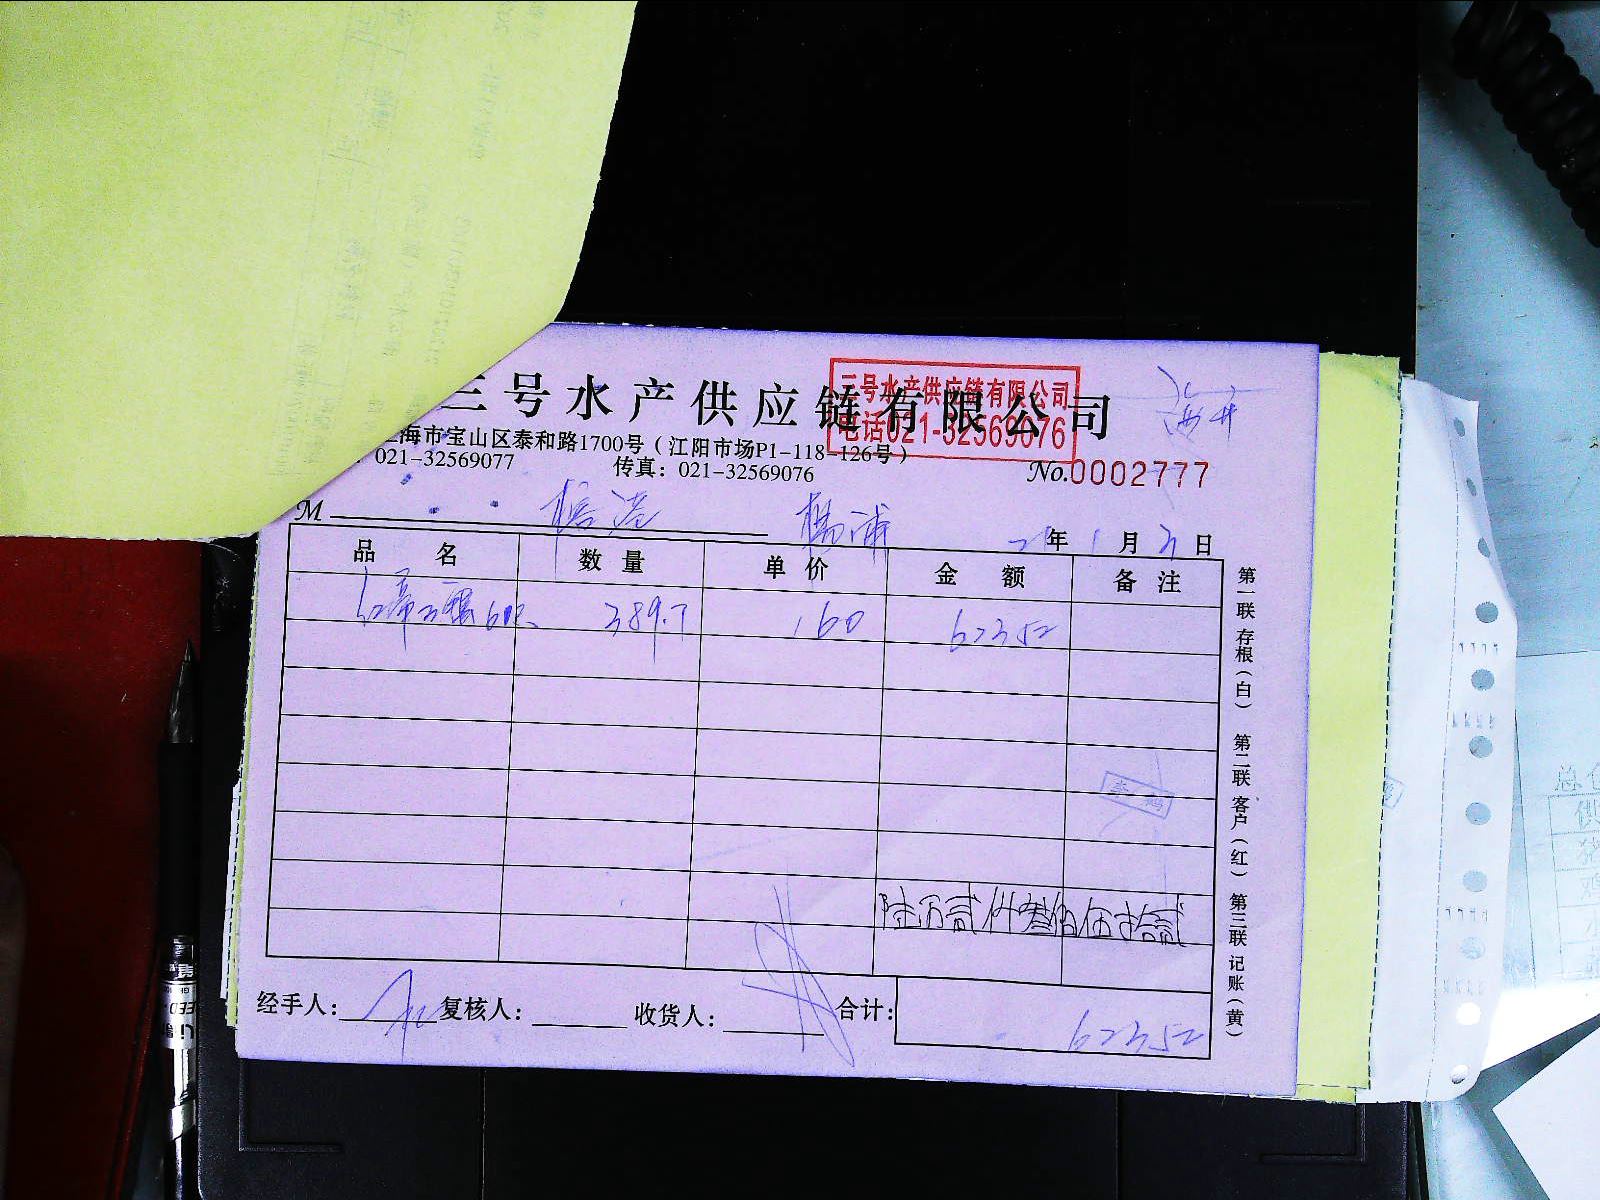 三号水产供应链有限公司
三号水产供应链有限公司
电话021-32569076
上海市宝山区泰和路1700号（江阳市场P1-118-126号）
021-32569077 传真：021-32569076
No.0002777
M 杨浦
21年1月3日
品名 数量 单价 金额 备注
389.7 160 62352
陆万贰仟叁佰伍拾贰
经手人： 复核人： 收货人： 合计：62352
第一联 存根（白） 第二联 客户（红） 第三联 记账（黄）